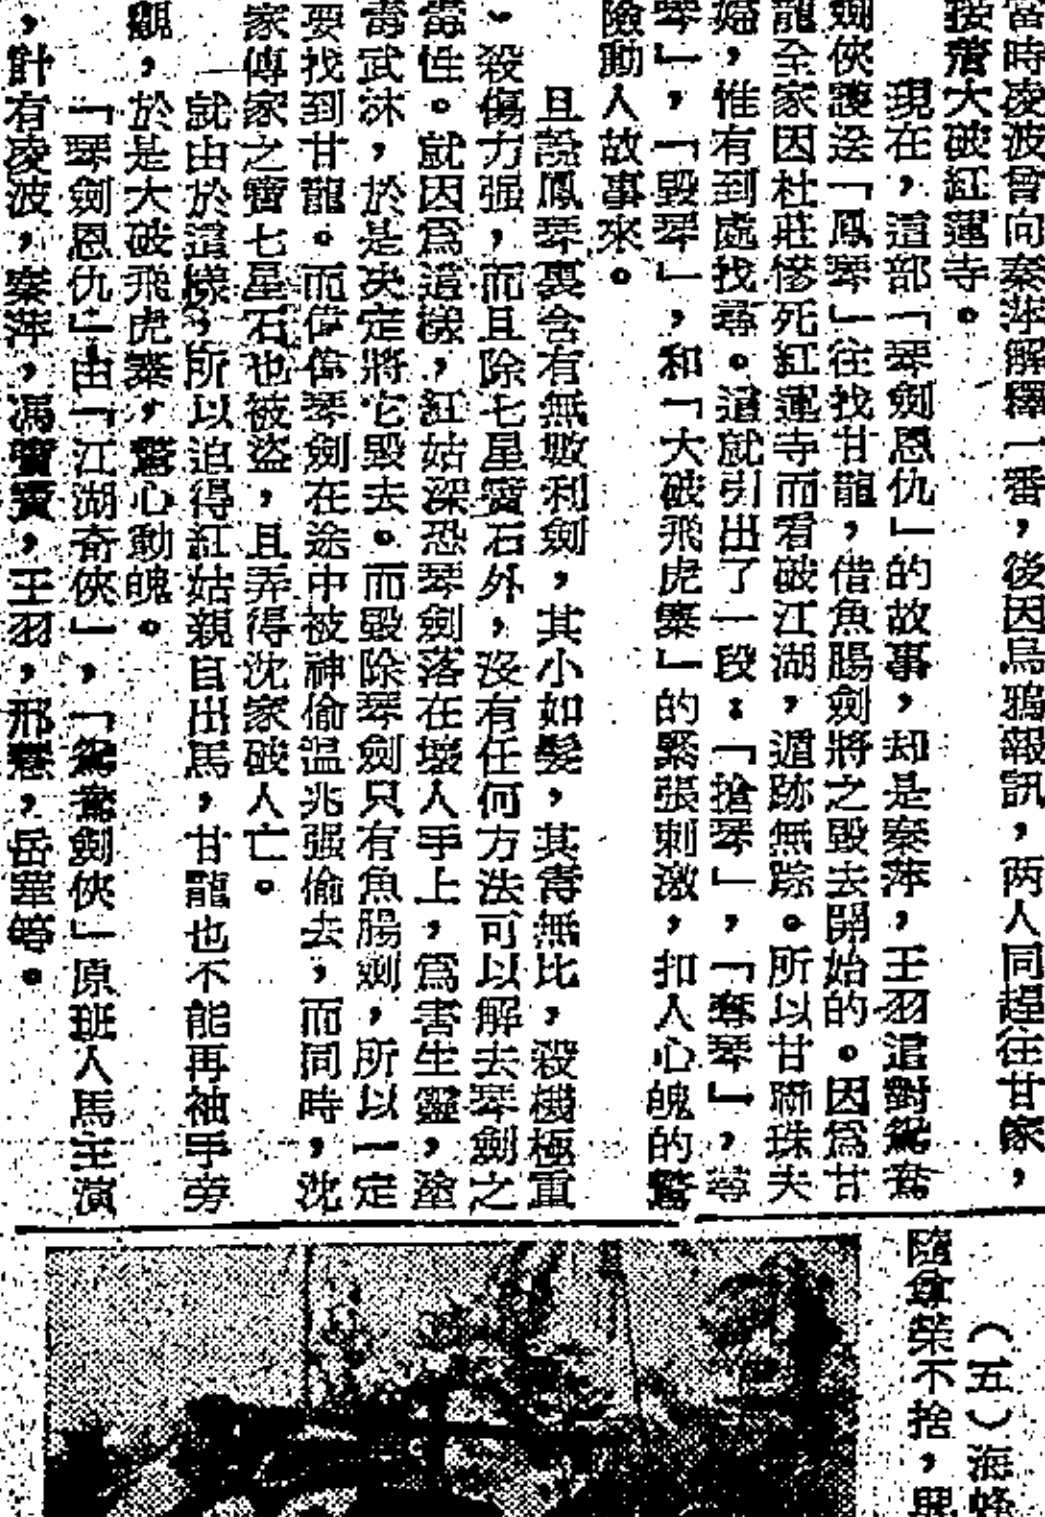 當時凌波曾向秦萍解釋一番，後因烏鴉報訊，两人同趕往甘家，
接着大破紅蓮寺。
現在，這部「琴劍恩仇」的故事，却是秦萍，王羽這對鴛鴦
劍俠護送「鳳琴」往找甘龍，借魚腸劍將之毀去開始的。因爲甘
龍全家因杜莊慘死紅蓮寺而看破江湖，遁跡無踪。所以甘聯珠夫
婦，惟有到處找尋。這就引出了一段：「搶琴」，「奪琴」，尋
琴」，「毀琴」，和「大破飛虎寨」的緊張刺激，扣人心魄的驚
險動人故事來。
且說鳳琴裏含有無數利劍，其小如髮，其毒無比，殺機極重
、殺傷力强，而且除七星寶石外，沒有任何方法可以解去琴劍之
毒性。就因爲這樣，紅姑深恐琴劍落在壞人手上，爲害生靈，塗
毒武沐，於是决定將它毀去。而毀除琴劍只有魚腸劍，所以一定
要找到甘龍。而偉偉琴劍在途中被神偷温兆强偷去，而同時，沈
家傳家之寶七星石也被盜，且弄得沈家破人亡。
就由於這樣，所以迫得紅姑親自出馬，甘龍也不能再袖手旁
觀，於是大破飛虎寨，驚心動魄。
「琴劍恩仇」由「江湖奇俠」，「鴛鴦劍俠」原班人馬主演
，計有凌波，秦萍，馮寶寶，王羽，邢慧，岳華等。
（五）海蜂
隨拿榮不捨，